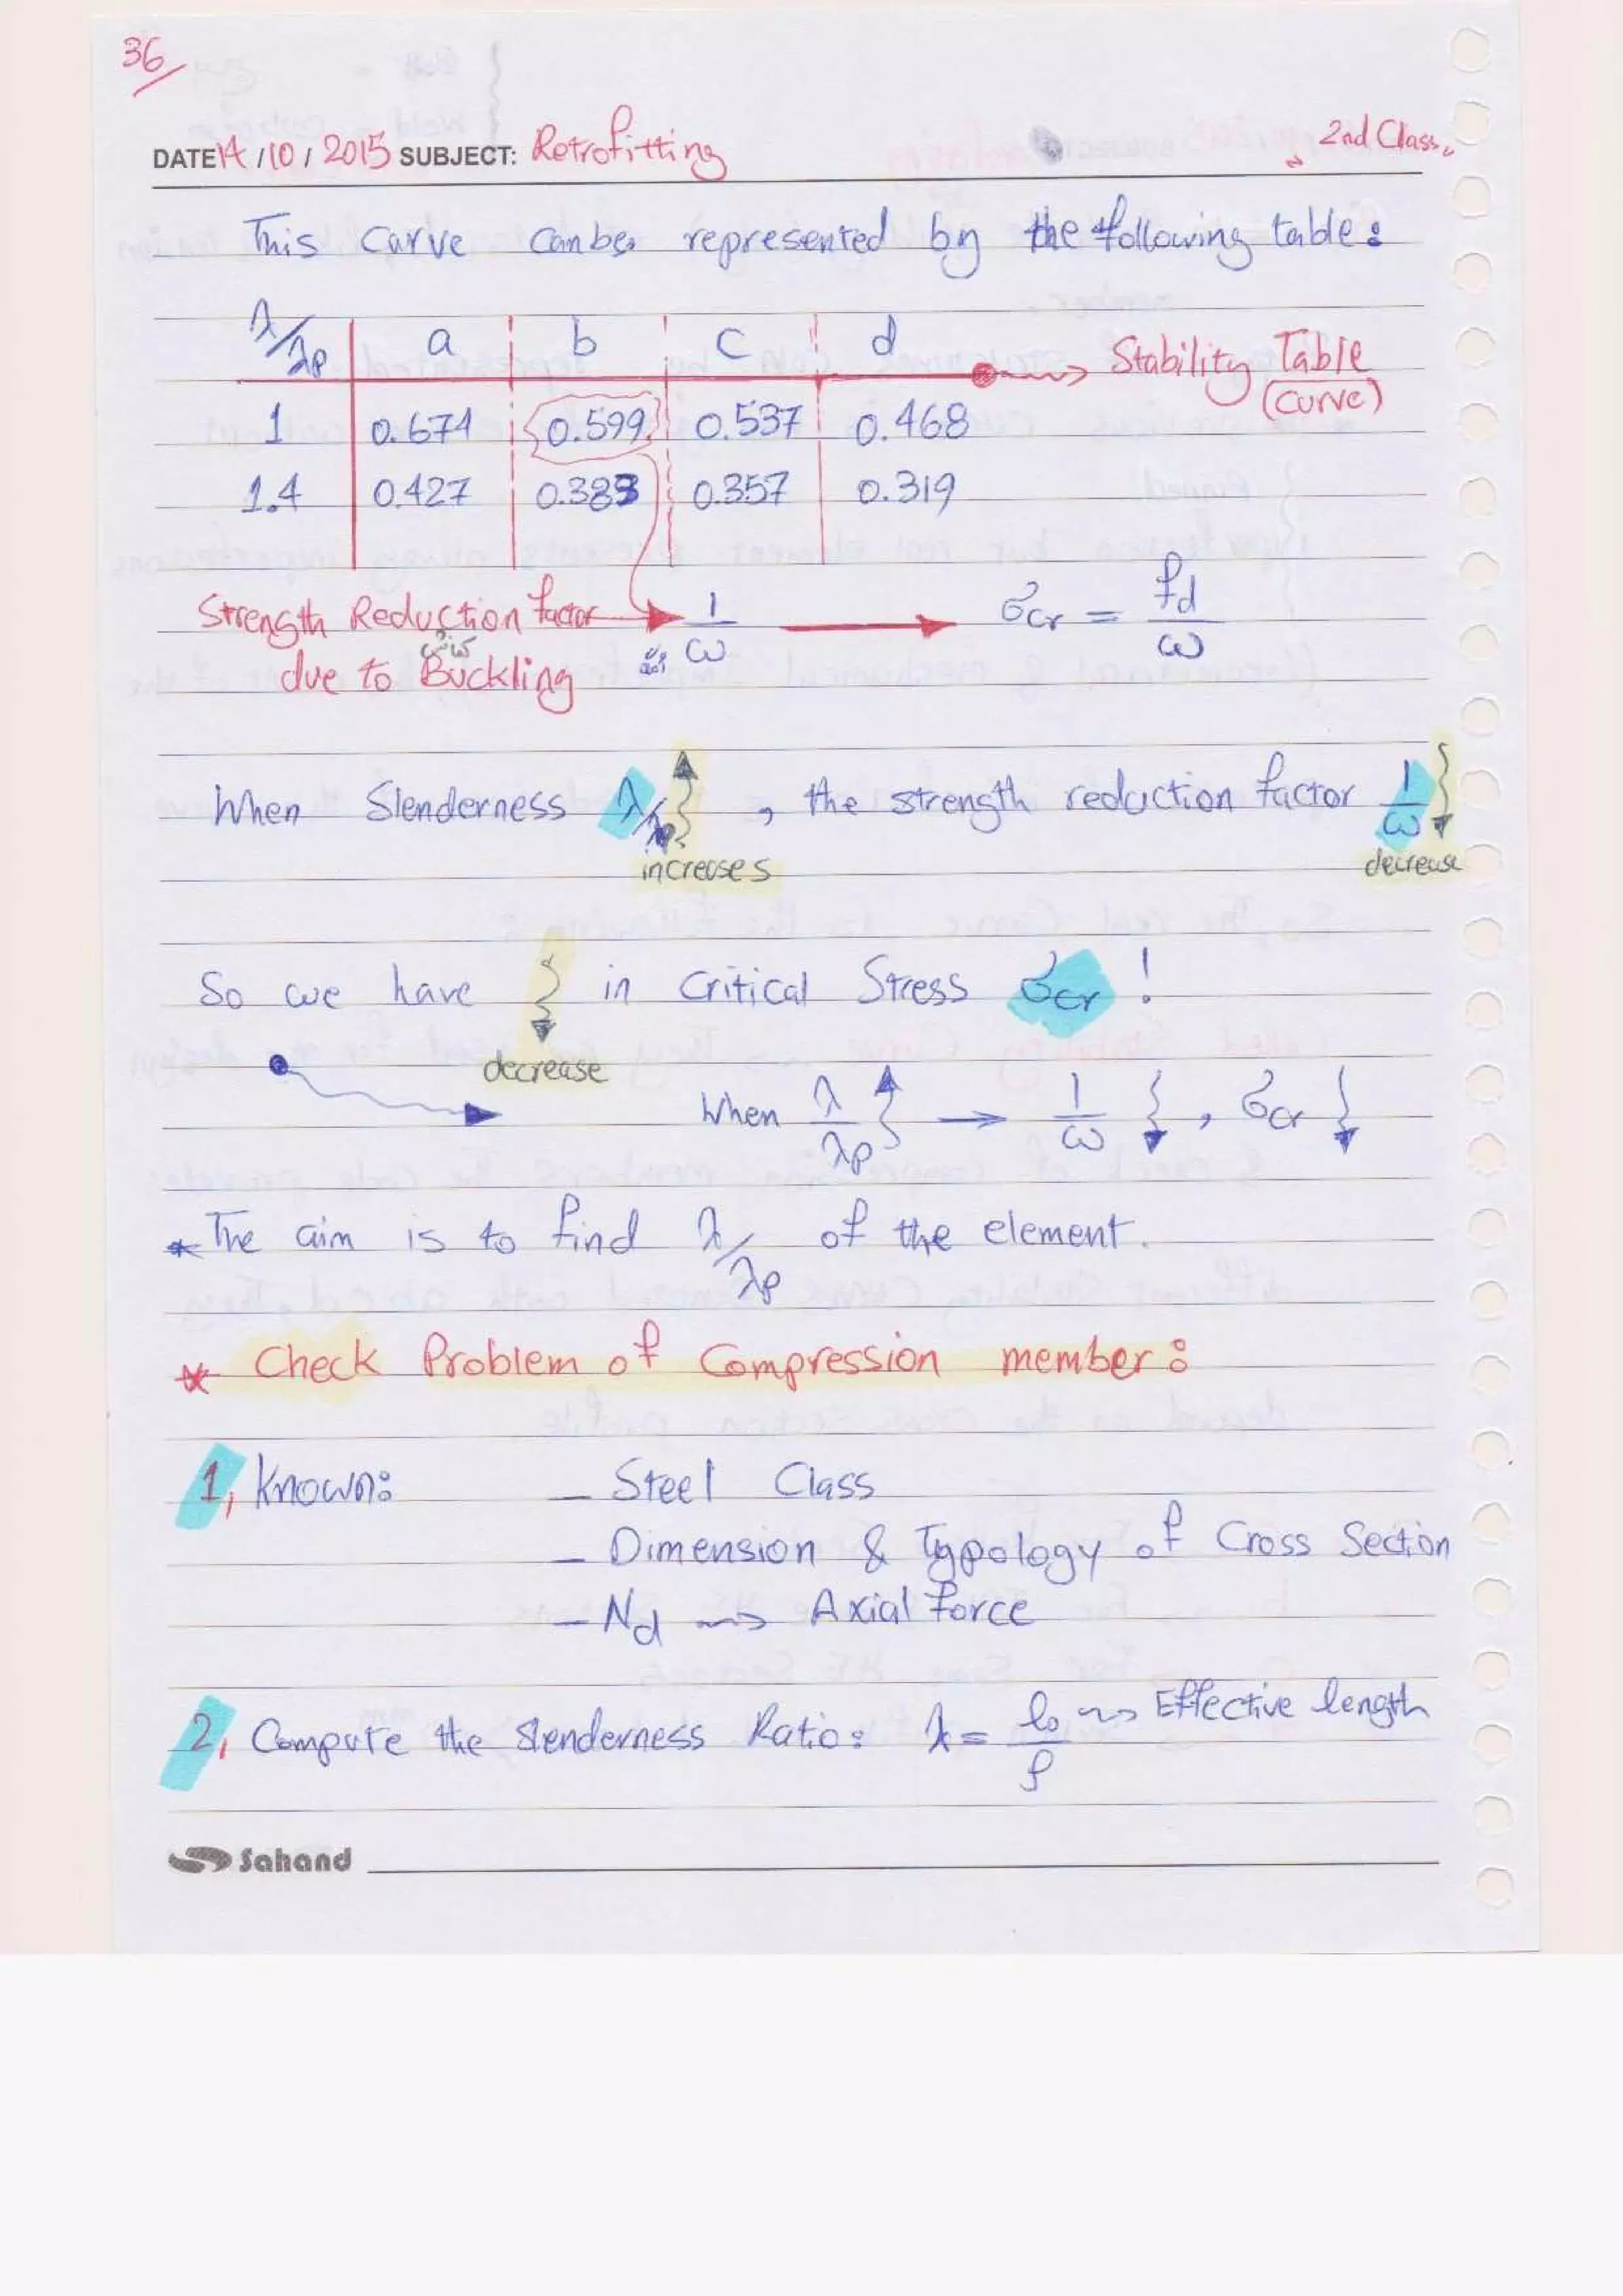 36
DATE 14 / 10 / 2015 SUBJECT: Retrofitting 2nd Class
This curve can be represented by the following table:
λ/λp a b c d
Stability Table
(curve)
1 0.674 0.599 0.537 0.468
1.4 0.427 0.383 0.357 0.319
Strength Reduction factor → 1/ω → σcr = fd/ω
کمانش
due to Buckling
When Slenderness λ/λp, the strength reduction factor 1/ω
increases decrease
So we have in critical Stress σcr !
decrease
When λ/λp → 1/ω , σcr
* The aim is to find λ/λp of the element.
* Check Problem of Compression member:
1, Known: – Steel Class
– Dimension & Typology of Cross Section
– Nd ⇝ Axial Force
2, Compute the Slenderness Ratio: λ = l0/ρ ⇝ Effective length
Sahand